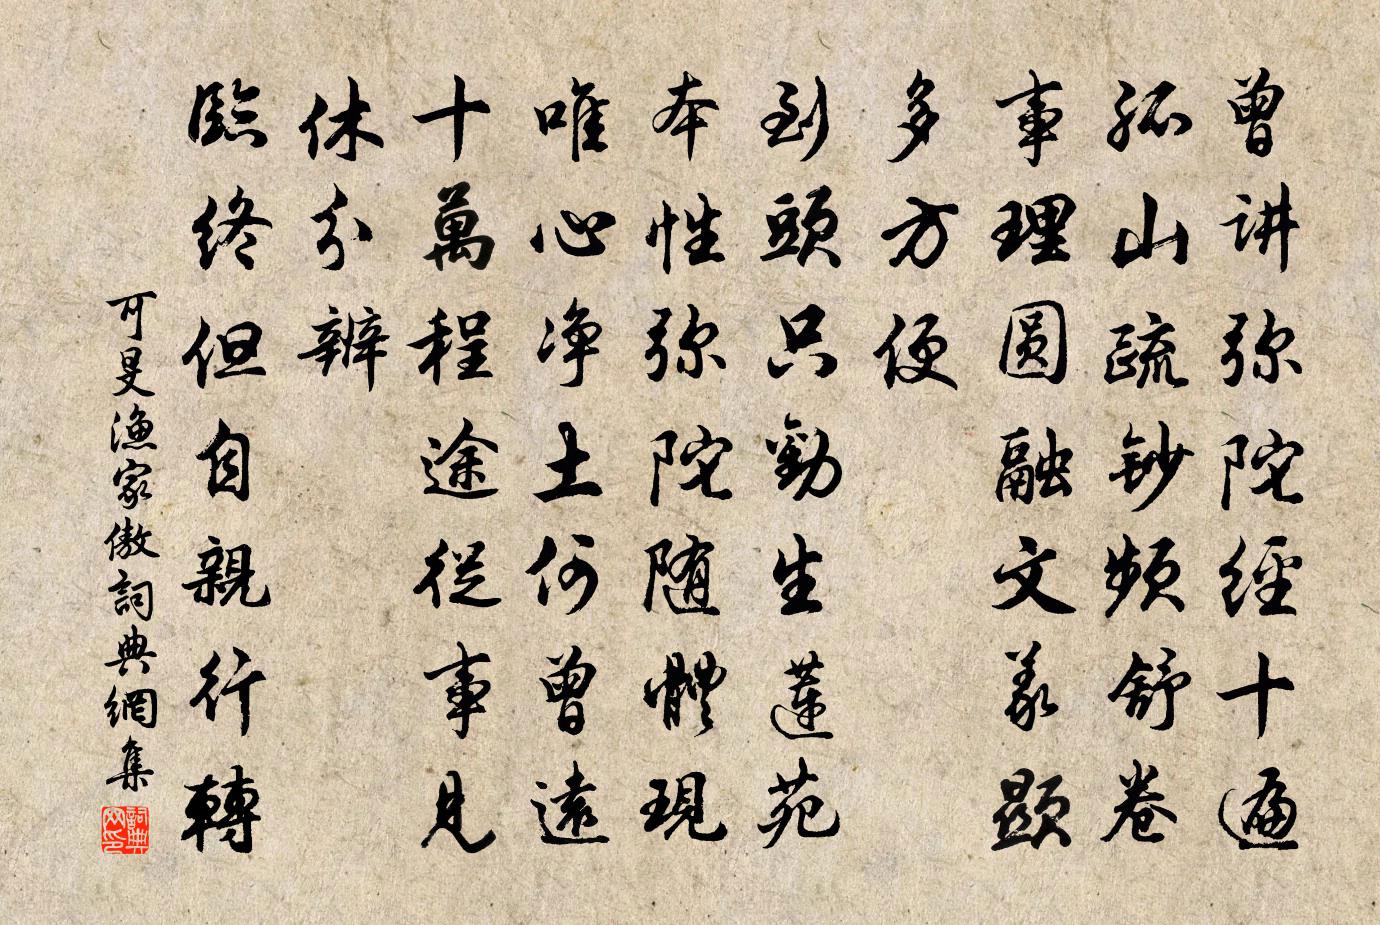 曾讲弥陀經十遍
孤山疏鈔頻舒卷
事理圓融文義顯
多方便
到頭只勸生蓮苑
本性弥陀随體現
唯心净土何曾遠
十萬程途從事見
休分辨
臨終但自親行轉
可旻漁家傲詞典網集
詞典
网印